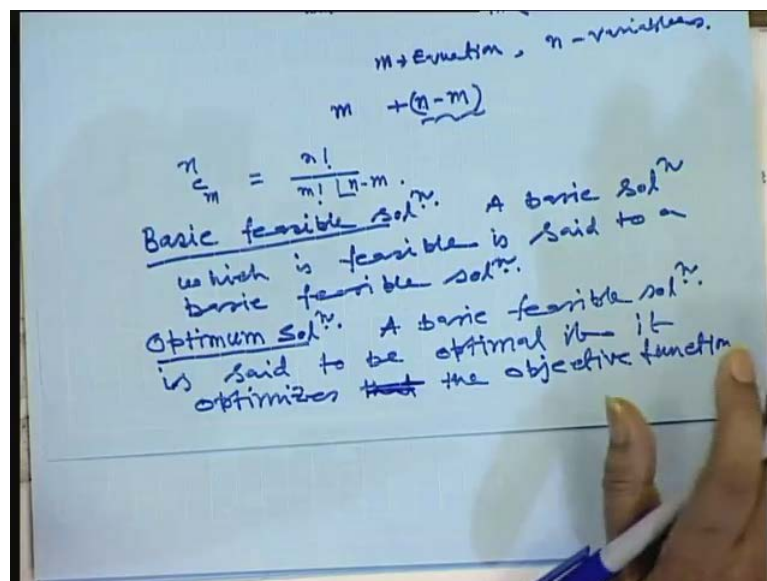 m → Equation, n - variables.
m + (n - m)
ⁿC_m = n! / m! |n-m .
Basic feasible solⁿ. A basic solⁿ
which is feasible is said to a
basic feasible solⁿ.
Optimum solⁿ. A basic feasible solⁿ.
is said to be optimal if it
optimizes the objective function